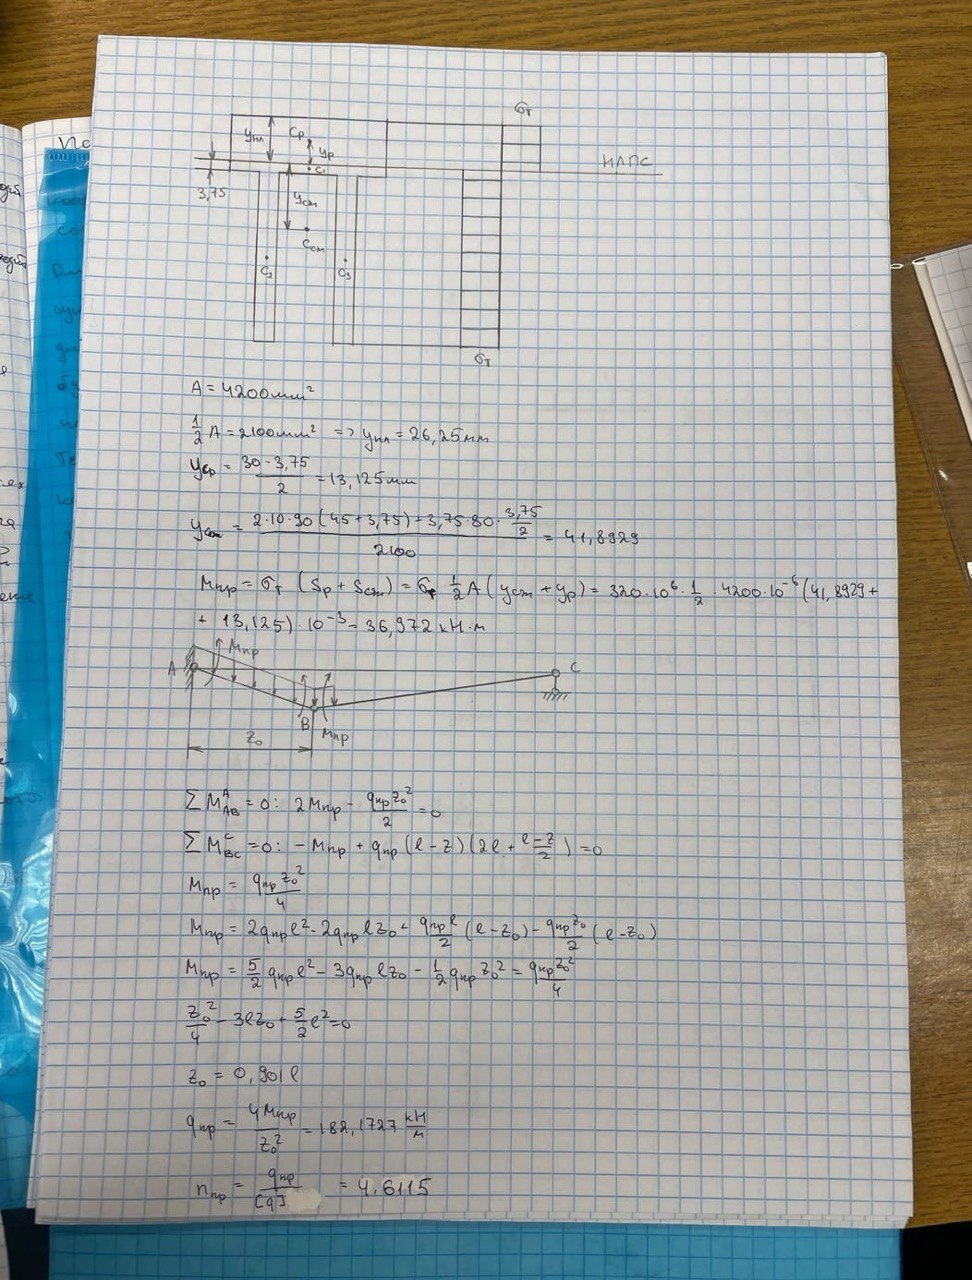 σт
yпл
Cр
yр
C₁
НЛПС
3,75
yсж
Cсж
C₂
C₃
σт
A = 4200мм²
½A = 2100мм² => yпл = 26,25мм
yср = (30-3,75)/2 = 13,125мм
y = (2·10·90(45+3,75)+3,75·80·3,75/2)/2100 = 41,8929
Mпр = σт (Sр + Sсж) = σт ½A(yсж + yр) = 320·10⁶·½·4200·10⁻⁶(41,8929+
+ 13,125)·10⁻³ = 36,972 кН·м
A
Mпр
C
B
Mпр
z₀
ΣM^A_AB = 0: 2Mпр - qпр z₀²/2 = 0
ΣM^C_BC = 0: - Mпр + qпр (l-z)(2l + (l-z)/2) = 0
Mпр = qпр z₀²/4
Mпр = 2qпр l² - 2qпр l z₀ + qпр l/2 (l-z₀) - qпр z₀/2 (l-z₀)
Mпр = 5/2 qпр l² - 3qпр l z₀ - ½ qпр z₀² = qпр z₀²/4
z₀²/4 - 3lz₀ + 5/2 l² = 0
z₀ = 0,901l
qпр = 4Mпр/z₀² = 182,1727 кН/м
nпр = qпр/[q] = 4.6115